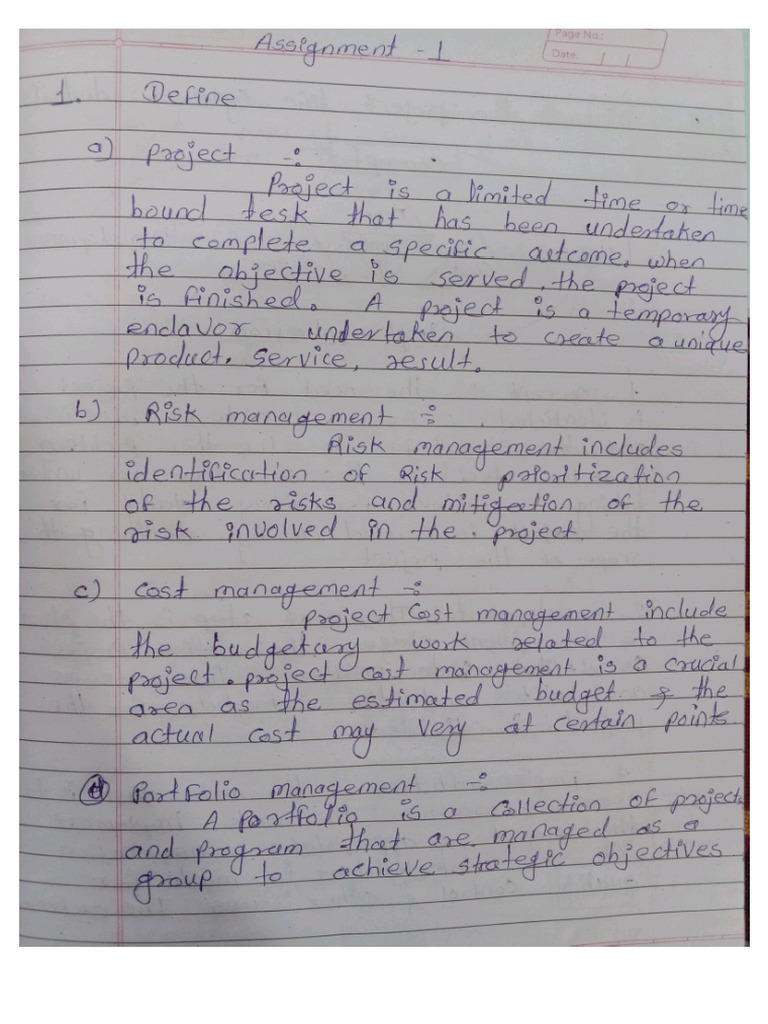 Assignment - 1
Page No.:
Date: / /
1. Define
a) project ÷
Project is a limited time or time
bound tesk that has been undertaken
to complete a specific outcome, when
the objective is served, the project
is finished. A project is a temporary
endavor undertaken to create a unique
product, service, result.
b) Risk management ÷
Risk management includes
identification of Risk prioritization
of the risks and mitigection of the
risk involved in the project
c) cost management ÷
project Cost management include
the budgetary work related to the
project. project cost management is a crucial
area as the estimated budget & the
actual cost may very at certain points
d) Portfolio management ÷
A Portfolio is a collection of project
and program that are managed as a
group to achieve strategic objectives